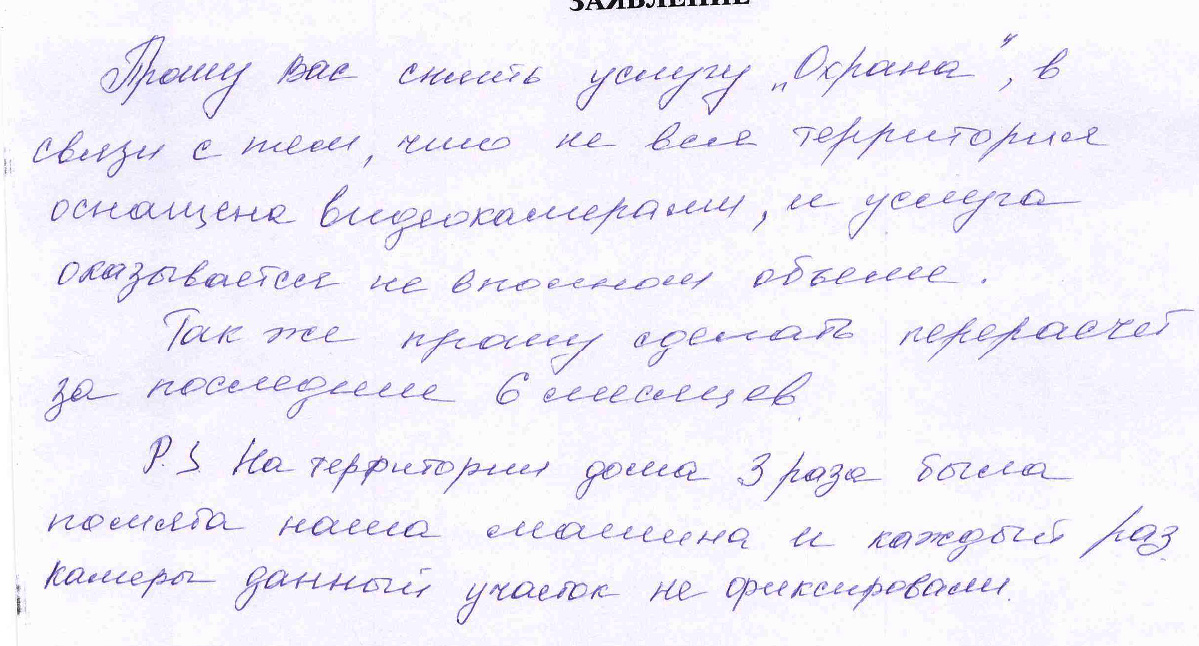 ЗАЯВЛЕНИЕ
Прошу вас снять услугу „Охрана", в
связи с тем, что не вся территория
оснащена видеокамерами, и услуга
оказывается не в полном объеме.
Так же прошу сделать перерасчет
за последние 6 месяцев
P.S На территории дома 3 раза была
помята наша машина и каждый раз
камеры данный участок не фиксировали.